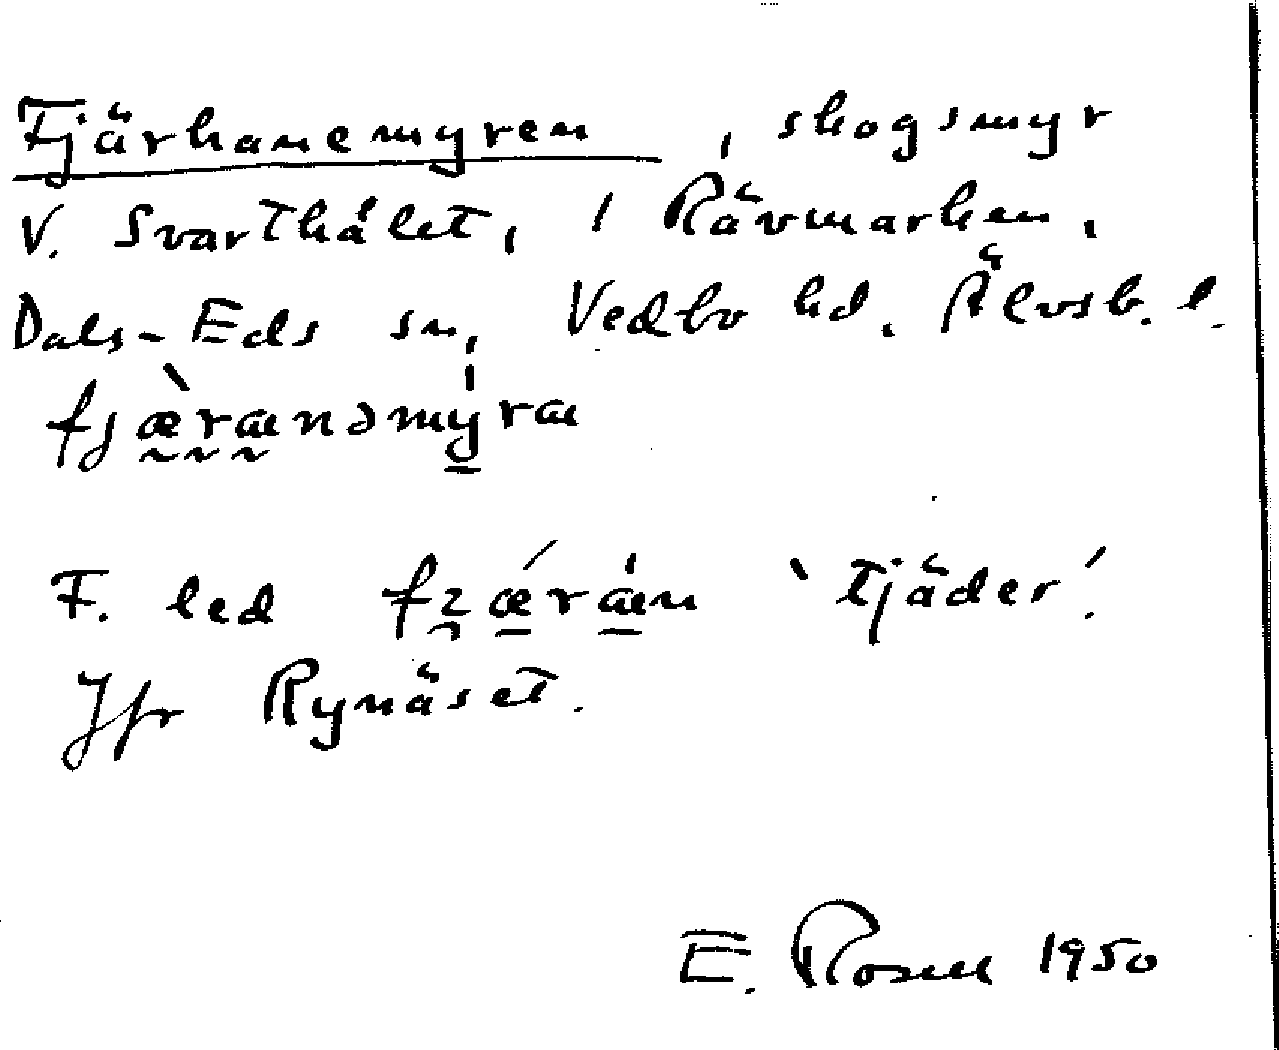 Fjärhanemyren, skogsmyr
V. Svarthålet, i Rävmarken,
Dals-Eds sn, Vedbo hd. Älvsb. l.
fjæ̀rænəmýra
F. led fjǽræ̀n `tjäder´.
Jfr Rynäset.
E. Rosell 1950